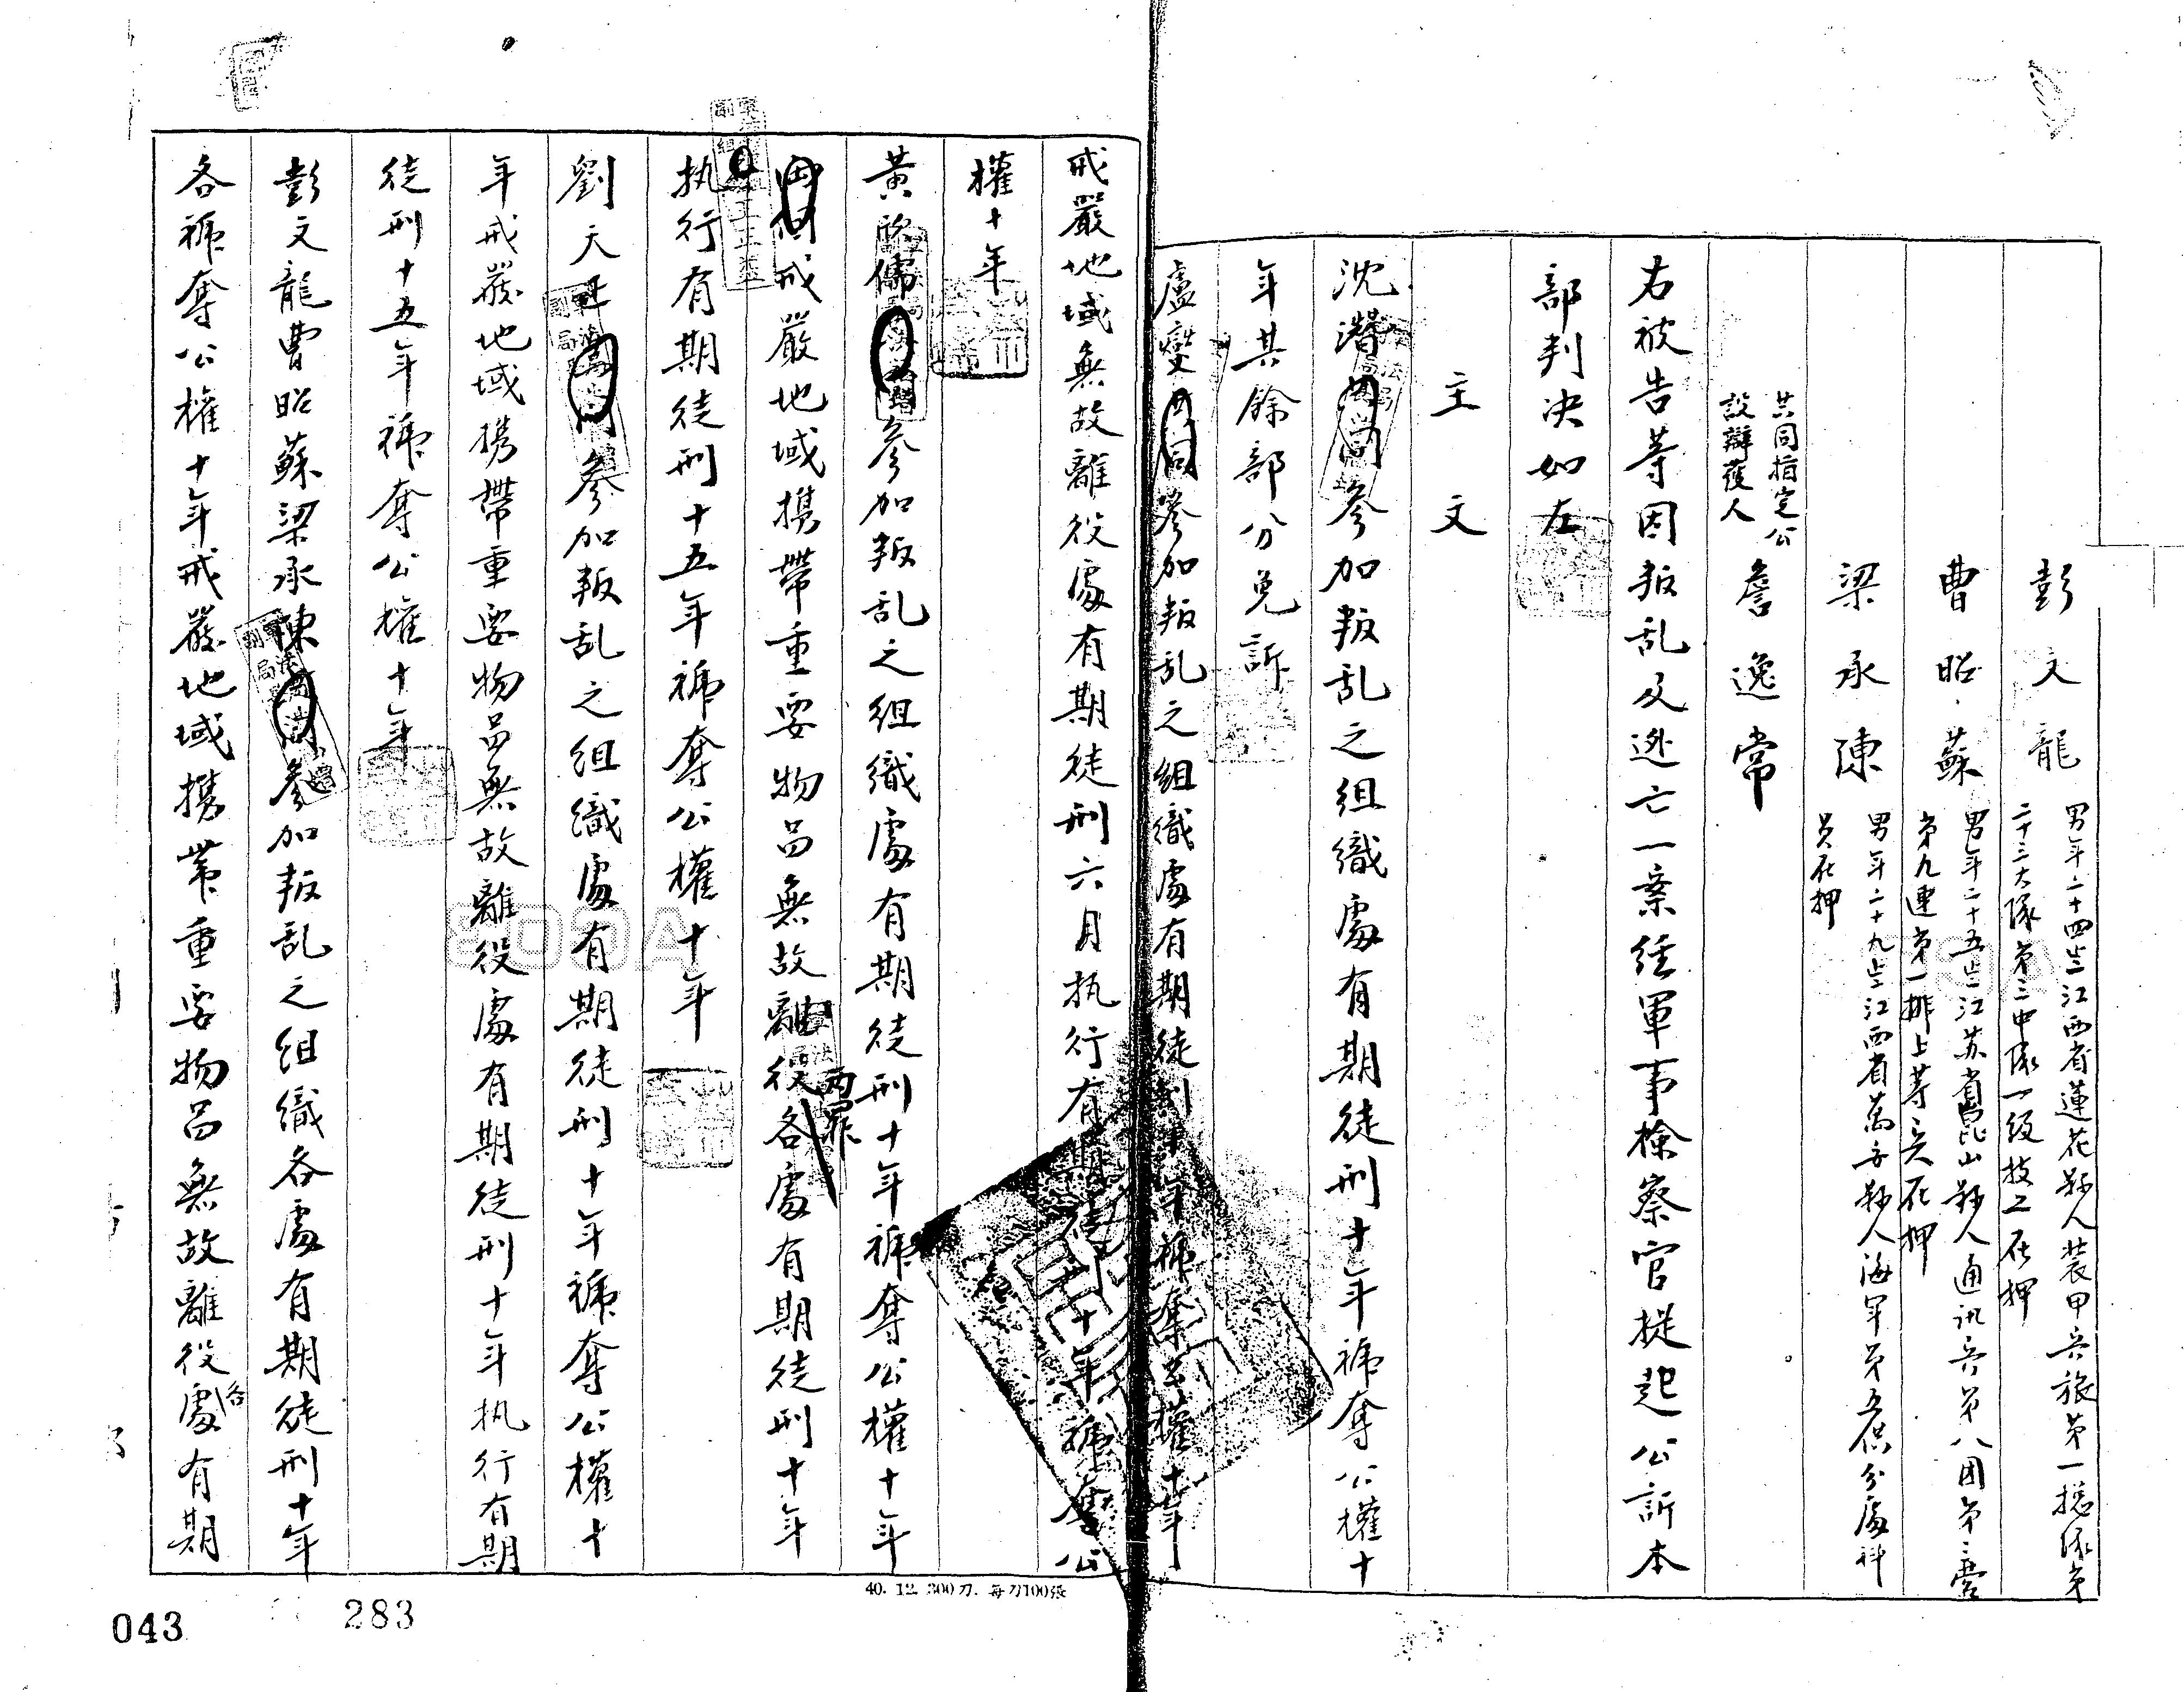 彭文龍 男年二十四岁江西省蓮花縣人装甲兵旅第一總隊第
二十三大隊第三中隊一级技工在押
曹昭蘇 男年二十五岁江苏省崑山縣人通讯兵第八团第三營
第九連第一排上等兵在押
梁承陳 男年二十九岁江西省萬安縣人海軍第五供分處科
員在押
共同指定公
設辯護人 詹逸常
右被告等因叛乱及逃亡一案經軍事檢察官提起公訴本
部判决如左
主文
沈濳 參加叛乱之组織處有期徒刑十年褫奪公權十
年其餘部分免訴
盧燮 參加叛乱之组織處有期徒刑十年褫奪公權十年
戒嚴地域無故離役處有期徒刑六月执行有期徒刑十年褫奪公
權十年
黃欣儒 參加叛乱之组織處有期徒刑十年褫奪公權十年
戒嚴地域携帶重要物品無故離役两罪各處有期徒刑十年
执行有期徒刑十五年褫奪公權十年
劉天 參加叛乱之组織處有期徒刑十年褫奪公權十
年戒嚴地域携帶重要物品無故離役處有期徒刑十年执行有期
徒刑十五年褫奪公權十年
彭文龍曹昭蘇梁承陳 參加叛乱之组織各處有期徒刑十年
各褫奪公權十年戒嚴地域携帶重要物品無故離役各處有期
40. 12. 300刀. 每刀100張
043
283